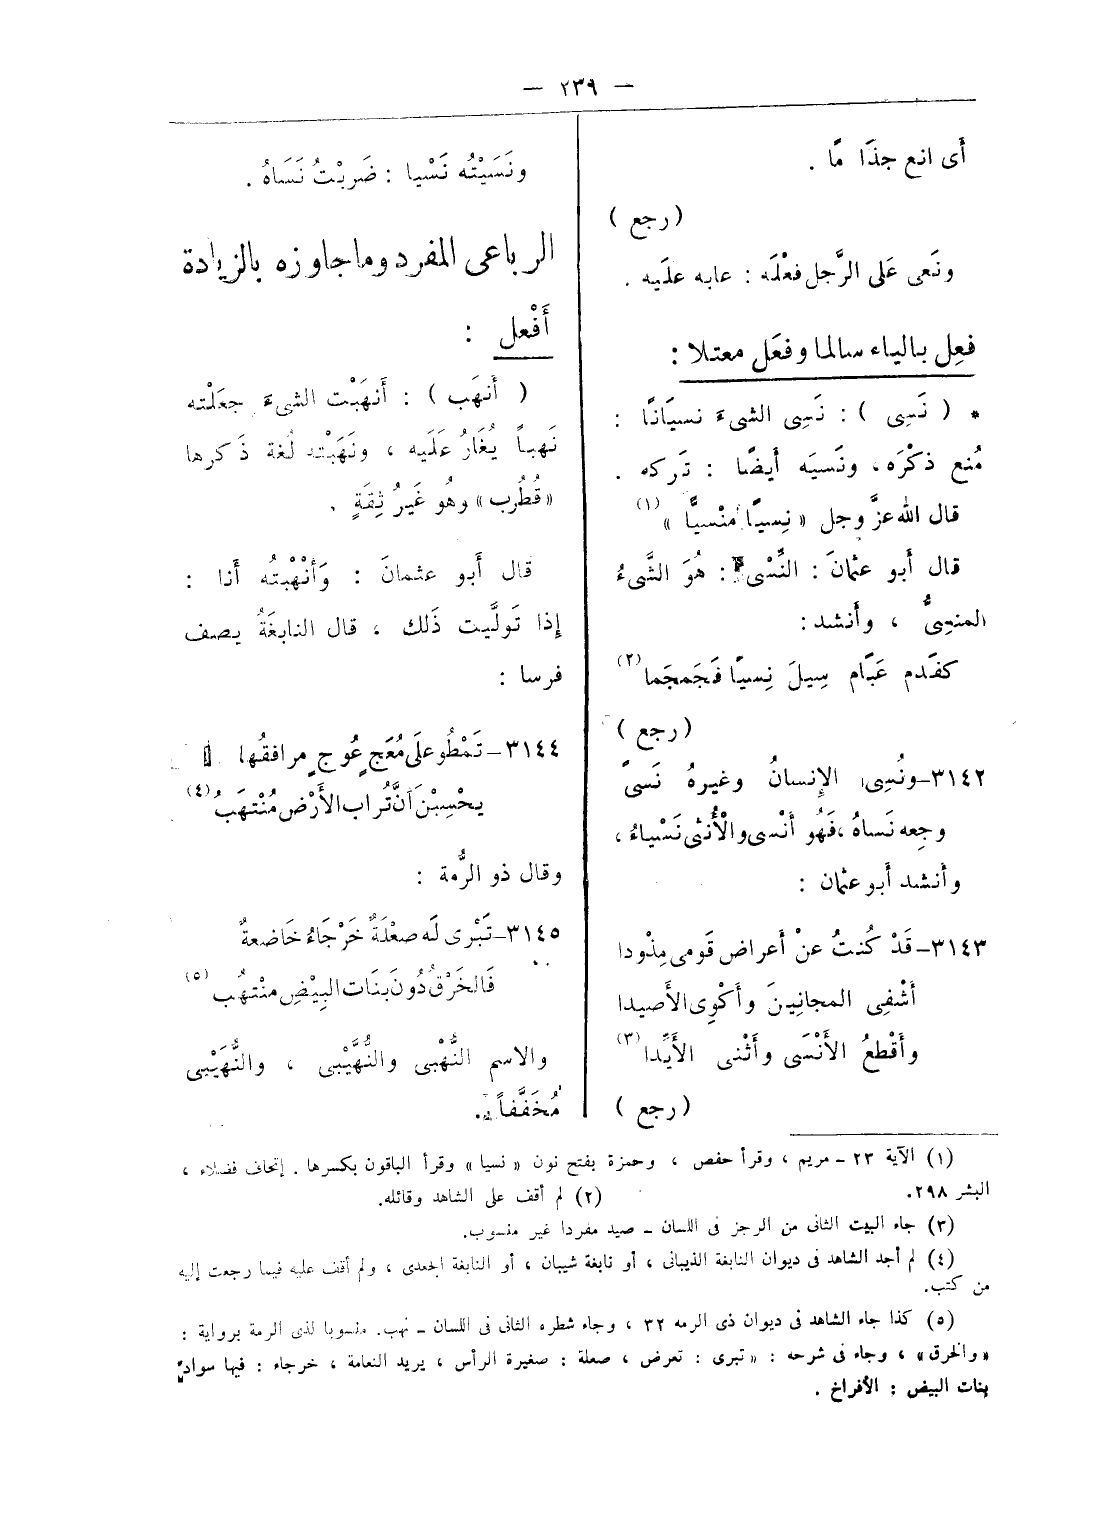 — ٢٣٩ —
أَى انع جذَا مَّا .
( رجع )
ونَعى عَلى الرَّجل فعْلَه : عابه علَيه .
فعِل بالياء سالما وفعَل معتلا :
* ( نَسِى ) : نَسِى الشىءَ نسيَانًا :
مُنع ذكْرَه، ونَسيَه أيضًا : تَركه .
قال الله عزَّ وجل « نِسيًا مَنْسيًّا » (١)
قال أَبو عثمانَ : النِّسْىُ : هُوَ الشَّىءُ
المنسِىُّ ، وأَنشد :
كفَدم عَبَّام سِيلَ نِسيًا فَجَمجَما (٢)
( رجع )
٣١٤٢–ونُسِى الإِنسانُ وغيرهُ نَسىً
وجعه نَساهُ ،فَهُو أنْسى والْأُنثى نَسْياءُ ،
وأَنشد أَبو عثمان :
٣١٤٣–قَدْ كُنتُ عنْ أَعراض قَومى مِذْودا
أشْفِى المجانِينَ وأَكْوِى الأَصيدا
وأَقْطعُ الأَنْسَى وأَثْنى الأَيِّدا (٣)
( رجع )
ونَسَيْتُه نَسْيا : ضَربْتُ نَسَاهُ .
الرباعى المفرد وما جاوزه بالزيادة
أَفْعل :
( أَنهَب ) : أَنهَبْت الشىءَ جعَلْته
نَهباً يُغَارُ عَلَيه ، ونَهَبْته لُغة ذَكرها
«قُطْرب» وهُو غَيرُ ثِقَةٍ .
قال أَبو عثمانَ : وَأَنْهْبتُه أَنا :
إِذا تَولَّيت ذَلك ، قال النابغَةُ يصف
فرسا :
٣١٤٤–تَمْطُو علَى مُعَجٍ عُوجٍ مرافقُها
يحْسِبْنَ أَنَّ تُراب الأَرْض مُنْتهَبُ (٤)
وقال ذو الرُّمة :
٣١٤٥–تَبْرى لَه صعْلَةٌ خَرْجَاءُ خَاضعةٌ
فَالخَرْقُ دُونَ بنَات البِيْضِ منْتهُب (٥)
والاسم النُّهْبى والنُّهَّيْبى ، والنُّهَيْبى
مُخَفَّفاً .
(١) الآية ٢٣ – مريم ، وقرأ حفص ، وحمزة بفتح نون « نسيا » وقرأ الباقون بكسرها . إتحاف فضلاء ،
البشر ٢٩٨.
(٢) لم أقف على الشاهد وقائله.
(٣) جاء البيت الثانى من الرجز فى اللسان – صيد مفردا غير منسوب.
(٤) لم أجد الشاهد فى ديوان النابغة الذيبانى ، أو نابغة شيبان ، أو النابغة الجعدى ، ولم أقف عليه فيما رجعت إليه
من كتب.
(٥) كذا جاء الشاهد فى ديوان ذى الرمه ٣٢ ، وجاء شطره الثانى فى اللسان – نهب. منسوبا لذى الرمة برواية :
«والخرق» ، وجاء فى شرحه : « تبرى : تعرض ، صعلة : صغيرة الرأس ، يريد النعامة ، خرجاء : فيها سواد
بنات البيض : الأفراخ .